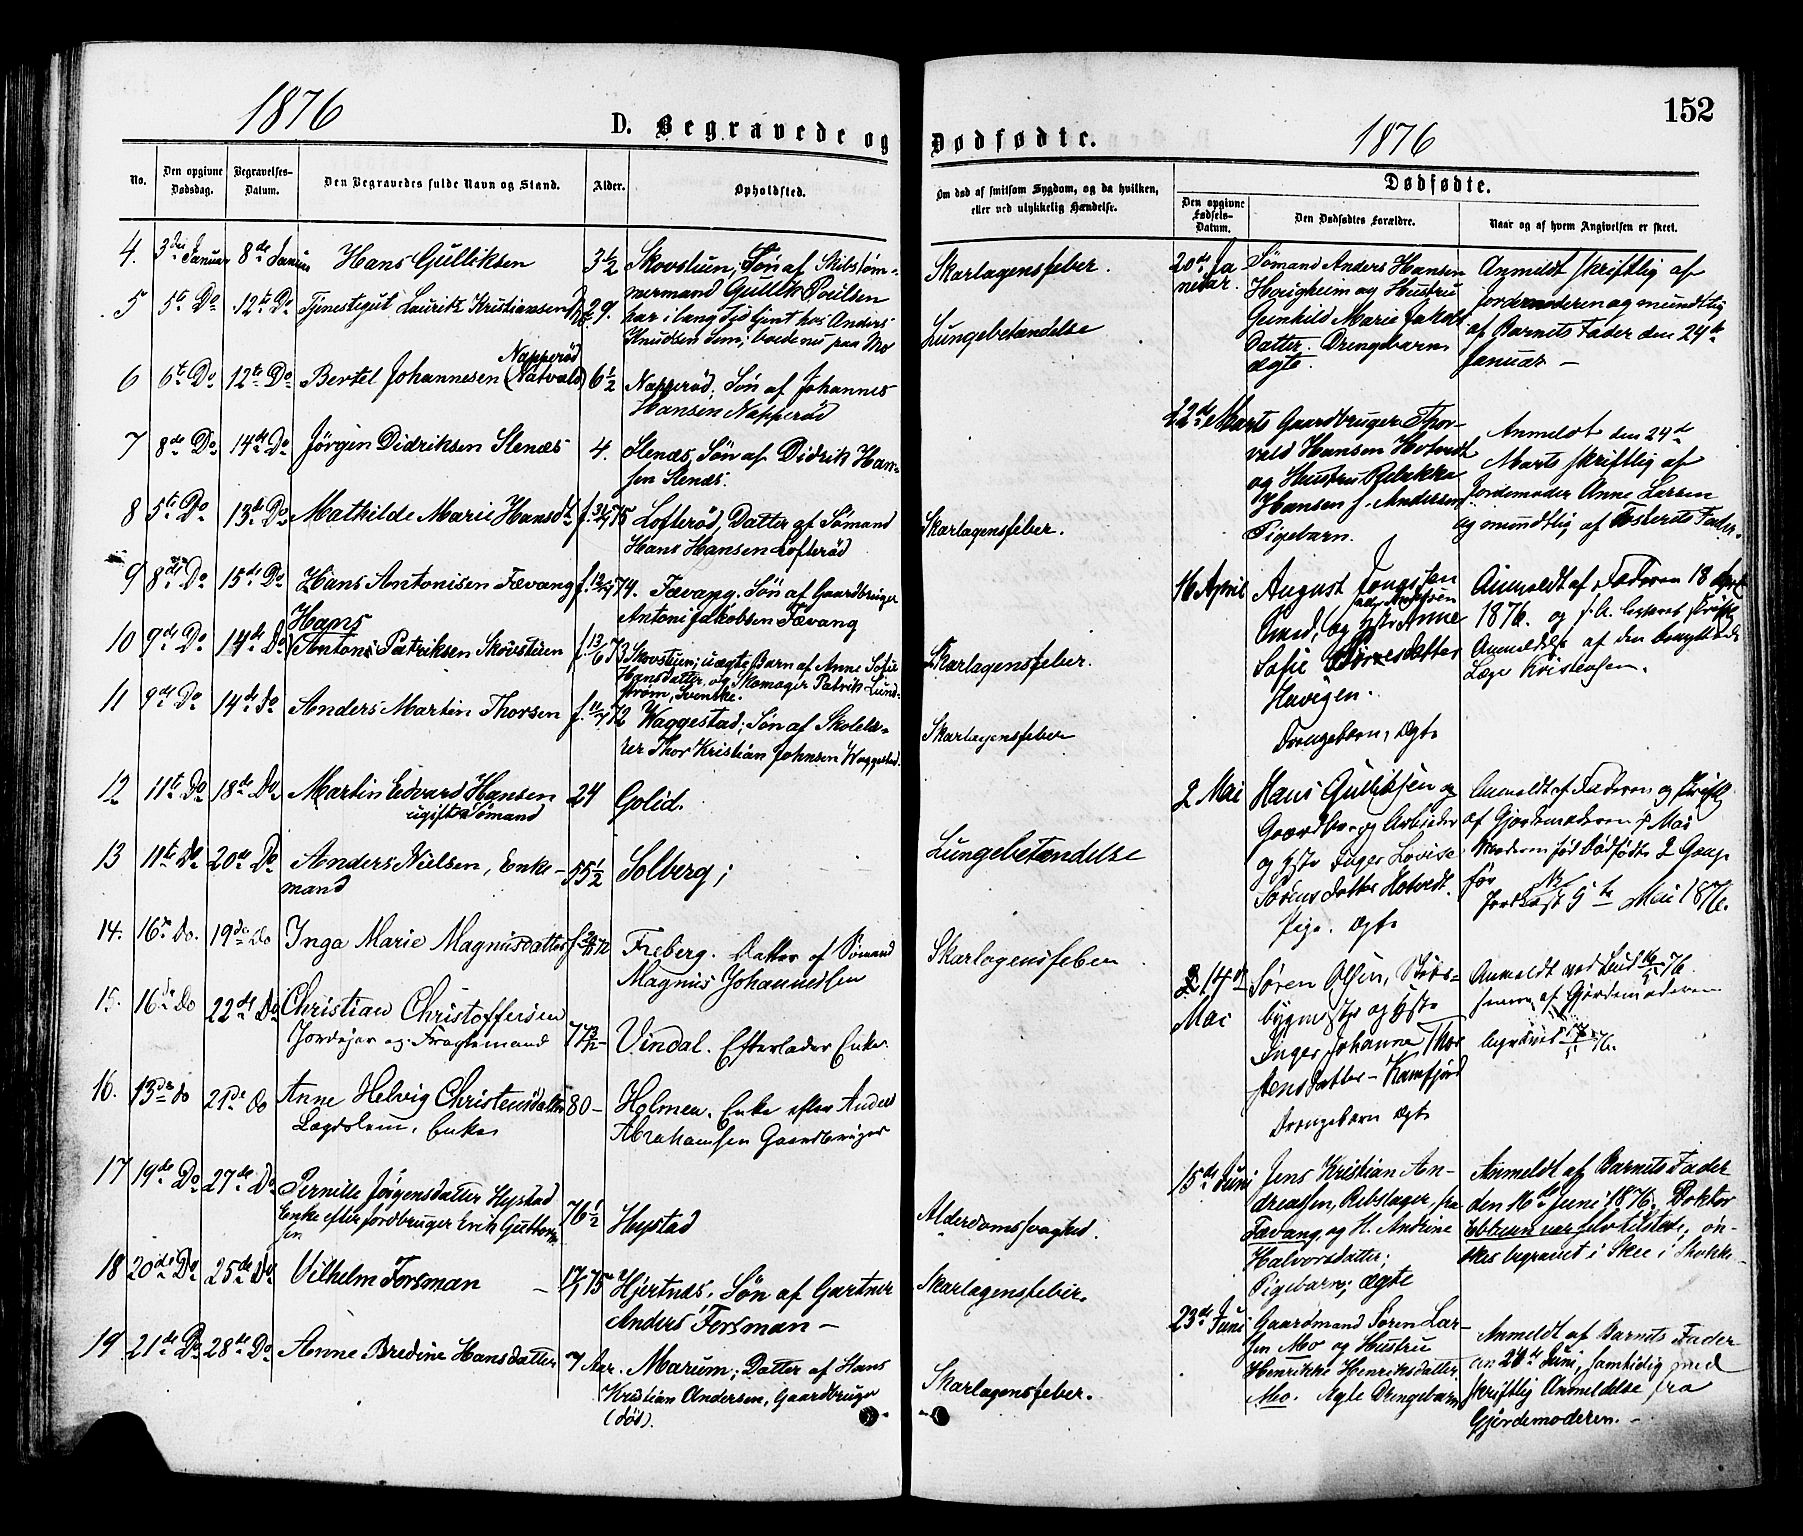 1876
D. Begravede og
No.
Den opgivne Dødsdag.
Begravelses-Datum.
Den Begravedes fulde Navn og Stand.
Alder.
Opholdsted.
4. 3die Januar 8de Januar Hans Gulliksen 3 1/2 Skovstuen; Søn af Skibstøm-
mermand Gullik Poulsen
5 5te Do 12te Do Tjenestegut Lauritz Kristiansen 29. har i lang Tid tjent hos Anders
Knudsen Lem; boede nu paa Mo
Napperød
6 6te Do 12te Do Bertel Johannesen (Natvald) 6 1/2 Napperød; Søn af Johannes
Hansen Napperød
7 8de Do 14de Do Jørgen Didriksen Stenæs 4. Stenæs, Søn af Didrik Han-
sen Stenæs.
8 5te Do 13de Do Mathilde Marie Hansdtr Lofterød, Datter af Sømand
Hans Hansen Lofterød
9 8de Do 15de Do Hans Antonisen Fævang f. 74. Fævang. Søn af Gaardbruger
Antoni Jakobsen Fævang
Hans
10 9de Do 14de Do Anton Patriksen Skovstuen f. 13/6 73 Skovstuen; uægte Barn af Anne Sofie
Hansdatter og Skomager Patrik Lund-
strøm, Svenske.
11 9de Do 14de Do Anders Martin Thorsen f. 72 Waggestad; Søn af Skolelæ-
rer Thor Kristian Johnsen Waggestad.
12 11te Do 18de Do Martin Edvard Hansen 24 Golid.
ugift Sømand
13 11te Do 20de Do Anders Nielsen, Enke- 55 1/2 Solberg;
mand
14. 16de Do. 19de Do Inga Marie Magnusdatter Freberg. Datter af Sømand
Magnus Johannessen
15. 16de Do 22de Do Christian Christoffersen
Jordejer og Fragtemand Vindal. Efterlader Enke
16. 13de do 21de do Anne Helvig Christensdatter 80 - Holmen. Enke efter Anders
Enke Abrahamsen Gaardbruger
17 19de Do 27de Do Pernille Jørgensdatter Hystad
Enke efter Jordbruger Erik Guttorm- 76 1/2 Hystad
sen
18 20de Do 25de Do Vilhelm Forsman - 17/1 75 Hjertnæs. Søn af Gartner
Anders Forsman -
19 21de Do 28de Do Anne Bredine Hansdatter 7 Aar. Marum; Datter af Hans
Kristian Andersen, Gaardbruger
(død).
152
Dødfødte.
1876
Om død af smitsom Sygdom, og da hvilken,
eller ved ulykkelig Hændelse.
Dødfødte.
Den opgivne Fødsels-Datum.
Den Dødfødtes Forældre.
Naar og af hvem Angivelsen er skeet.
Skarlagensfeber.
Lungebetændelse
Skarlagensfeber.
Skarlagensfeber.
Skarlagensfeber
Lungebetændelse
Skarlagensfeber
Alderdomssvaghed.
Skarlagensfeber.
Skarlagensfeber.
20de Ja-
nuar.
Sømand Anders Hansen
og Hustru
Gunhild Marie Jakobs-
datter. Drengebarn
ægte.
Anmeldt skriftlig af
Jordemoderen og mundtlig
af Barnets Fader den 24de
Januar -
22de Marts
Gaardbruger Thor-
vald Hansen Hotvedt
og Hustru Rebekka
Hansen f. Andersen
Pigebarn.
Anmeldt den 24de
Marts skriftlig af
Jordemoder Anne Larsen
og mundtlig af Fosterets Fader.
16 April
August
Smed, og Hstr Anne
Sofie
Havigen.
Drengebarn, Ægte
Anmeldt af Faderen 18 April
1876. og
Anmeldelse af den
Læge Kristensen.
2 Mai
Hans Gulliksen og
Gaardbr. og Arbeider
og Hstr Inger Lovise
Sørensdatter Hotvedt.
Pige. Ægte
Anmeldt af Faderen og skriftl
af Gjordemoderen 5 Mai
Moderen født dødfødte 2 Gange
før
5te Mai 1876.
14de
Mai
Søren Olsen, Skibs-
bygmester og Hstr
Inger Johanne Thor-
stensdatter - Kamfjord
Drengebarn Ægte
Anmeldt ved Bud 16/5 76.
af Gjordemoderen
15de Juni
Jens Kristian An-
dreassen, Rebslager, fra
Fævang, og H. Andrine
Halvorsdatter;
Pigebarn; ægte
Anmeldt af Barnets Fader
den 16de Juni 1876. Doktor
Ebbesen var selv tilstede; øn-
skes begravet i Skee i Stokke.
23de Juni
Gaardmand Søren Lar-
sen Mo og Hustru
Henrikke Henriksdatter
Mo. Ægte Drengebarn
Anmeldt af Barnets Fader
den 28de Juni, samtidig med
skriftlig Anmeldelse fra
Gjordemoderen. -